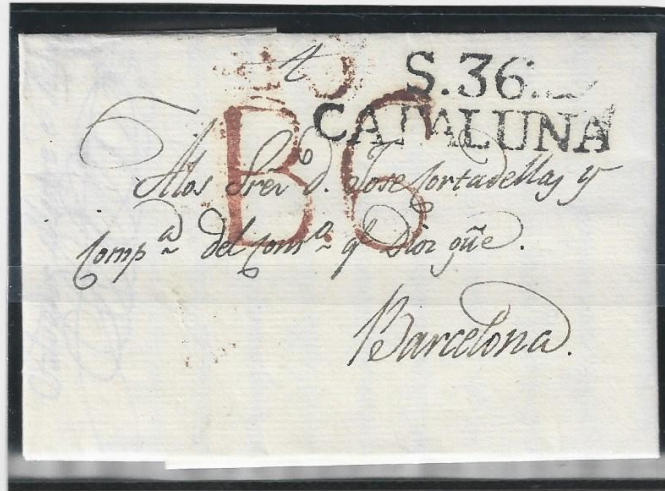 S.36.
CATALUÑA
B.6
A los Sres. d. Jose Cortadellas y
Comp.ª del Com.º q.e Dios gũe.
Barcelona.